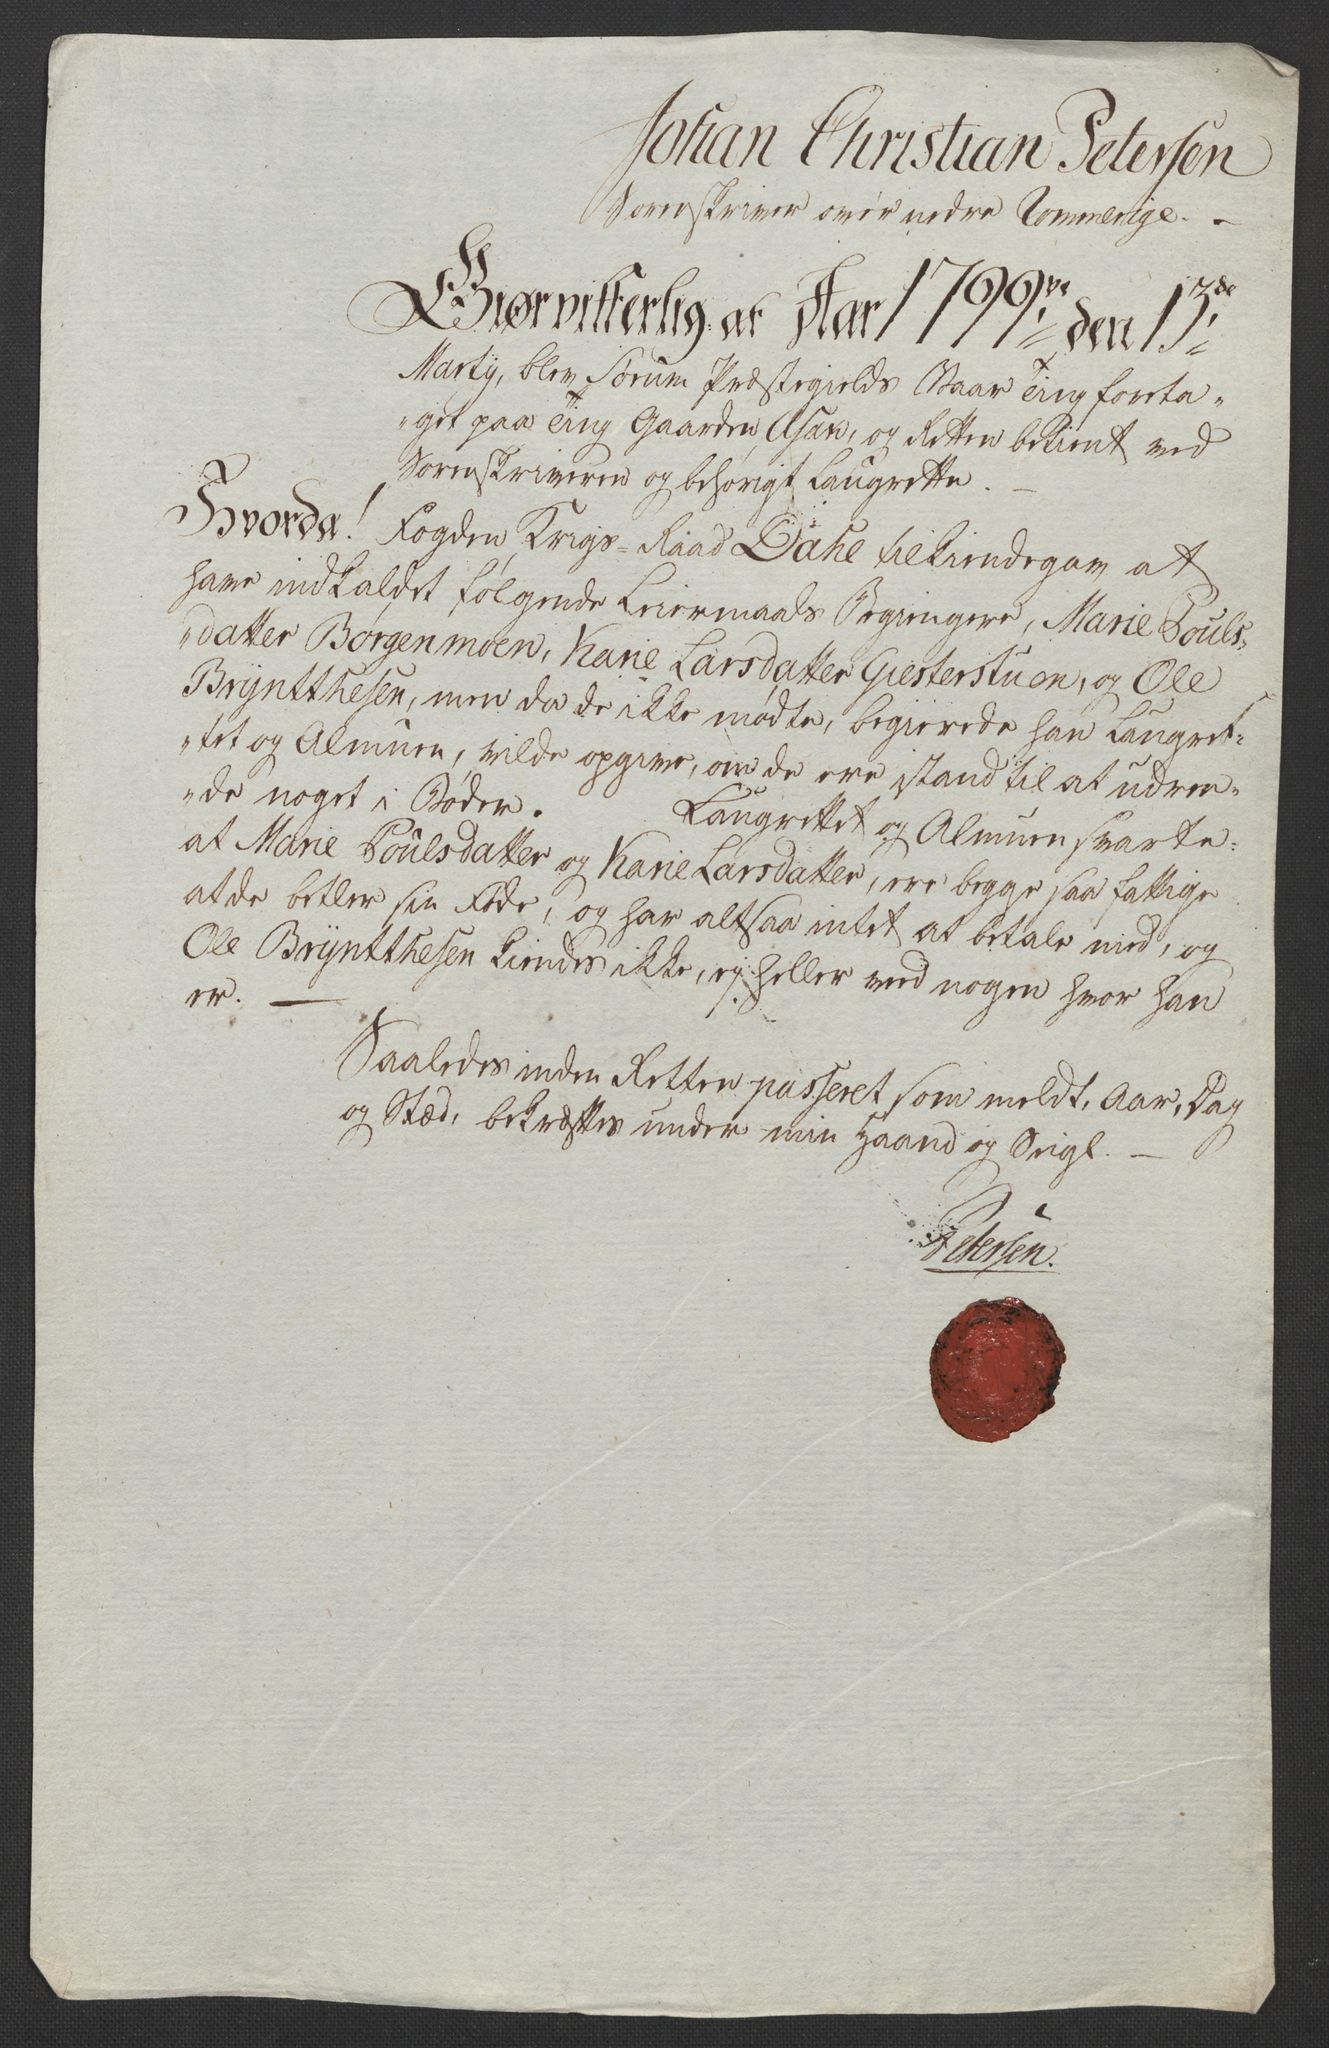 Johan Christian Petersen
Sorenskriver over nedre Rommerige. -
Giør vitterlig at Aar 1799ve den 13de
Martÿ, blev Sørum Præstegields Vaar Ting foreta„
„get paa Ting Gaarden Asak, og Retten betient ved
Sorenskriveren og behørigt Laugrette. —
Hvorda! Fogden Krigs-Raad Dahl tilkiendegav at
have indkaldet følgende Leiermaals Begiengere, Marie Pouls-
„datter Borgenmoen, Karie Larsdatter Giesterstuen, og Ole
Brÿntthesen, men da de ikke mødte, begierede han Laugret-
„tet og Almuen, vilde opgive, om de ere istand til at udree-
„de noget i Bøder. Laugrettet og Almuen svarte:
at Marie Poulsdatter og Karie Larsdatter, ere begge saa fattige
at de betler sin Føde, og har altsaa intet at betale med, og
Ole Brÿntthesen kiendes ikke, ej heller veed nogen hvor han
er. —
Saaledes inden Retten passeret som meldt, Aar, Dag
og Stæd, bekræftes under min Haand og Seigl. —
Petersen.